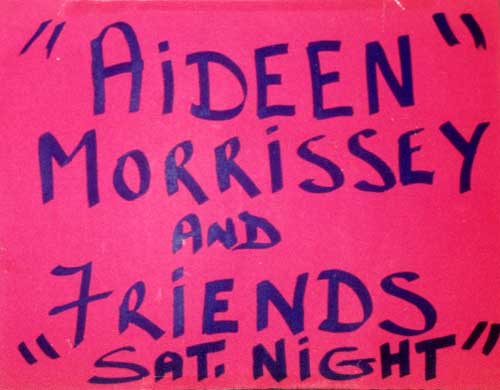 "AiDEEN"
MORRiSSEY
AND
FRiENDS
"SAT. NiGHT"